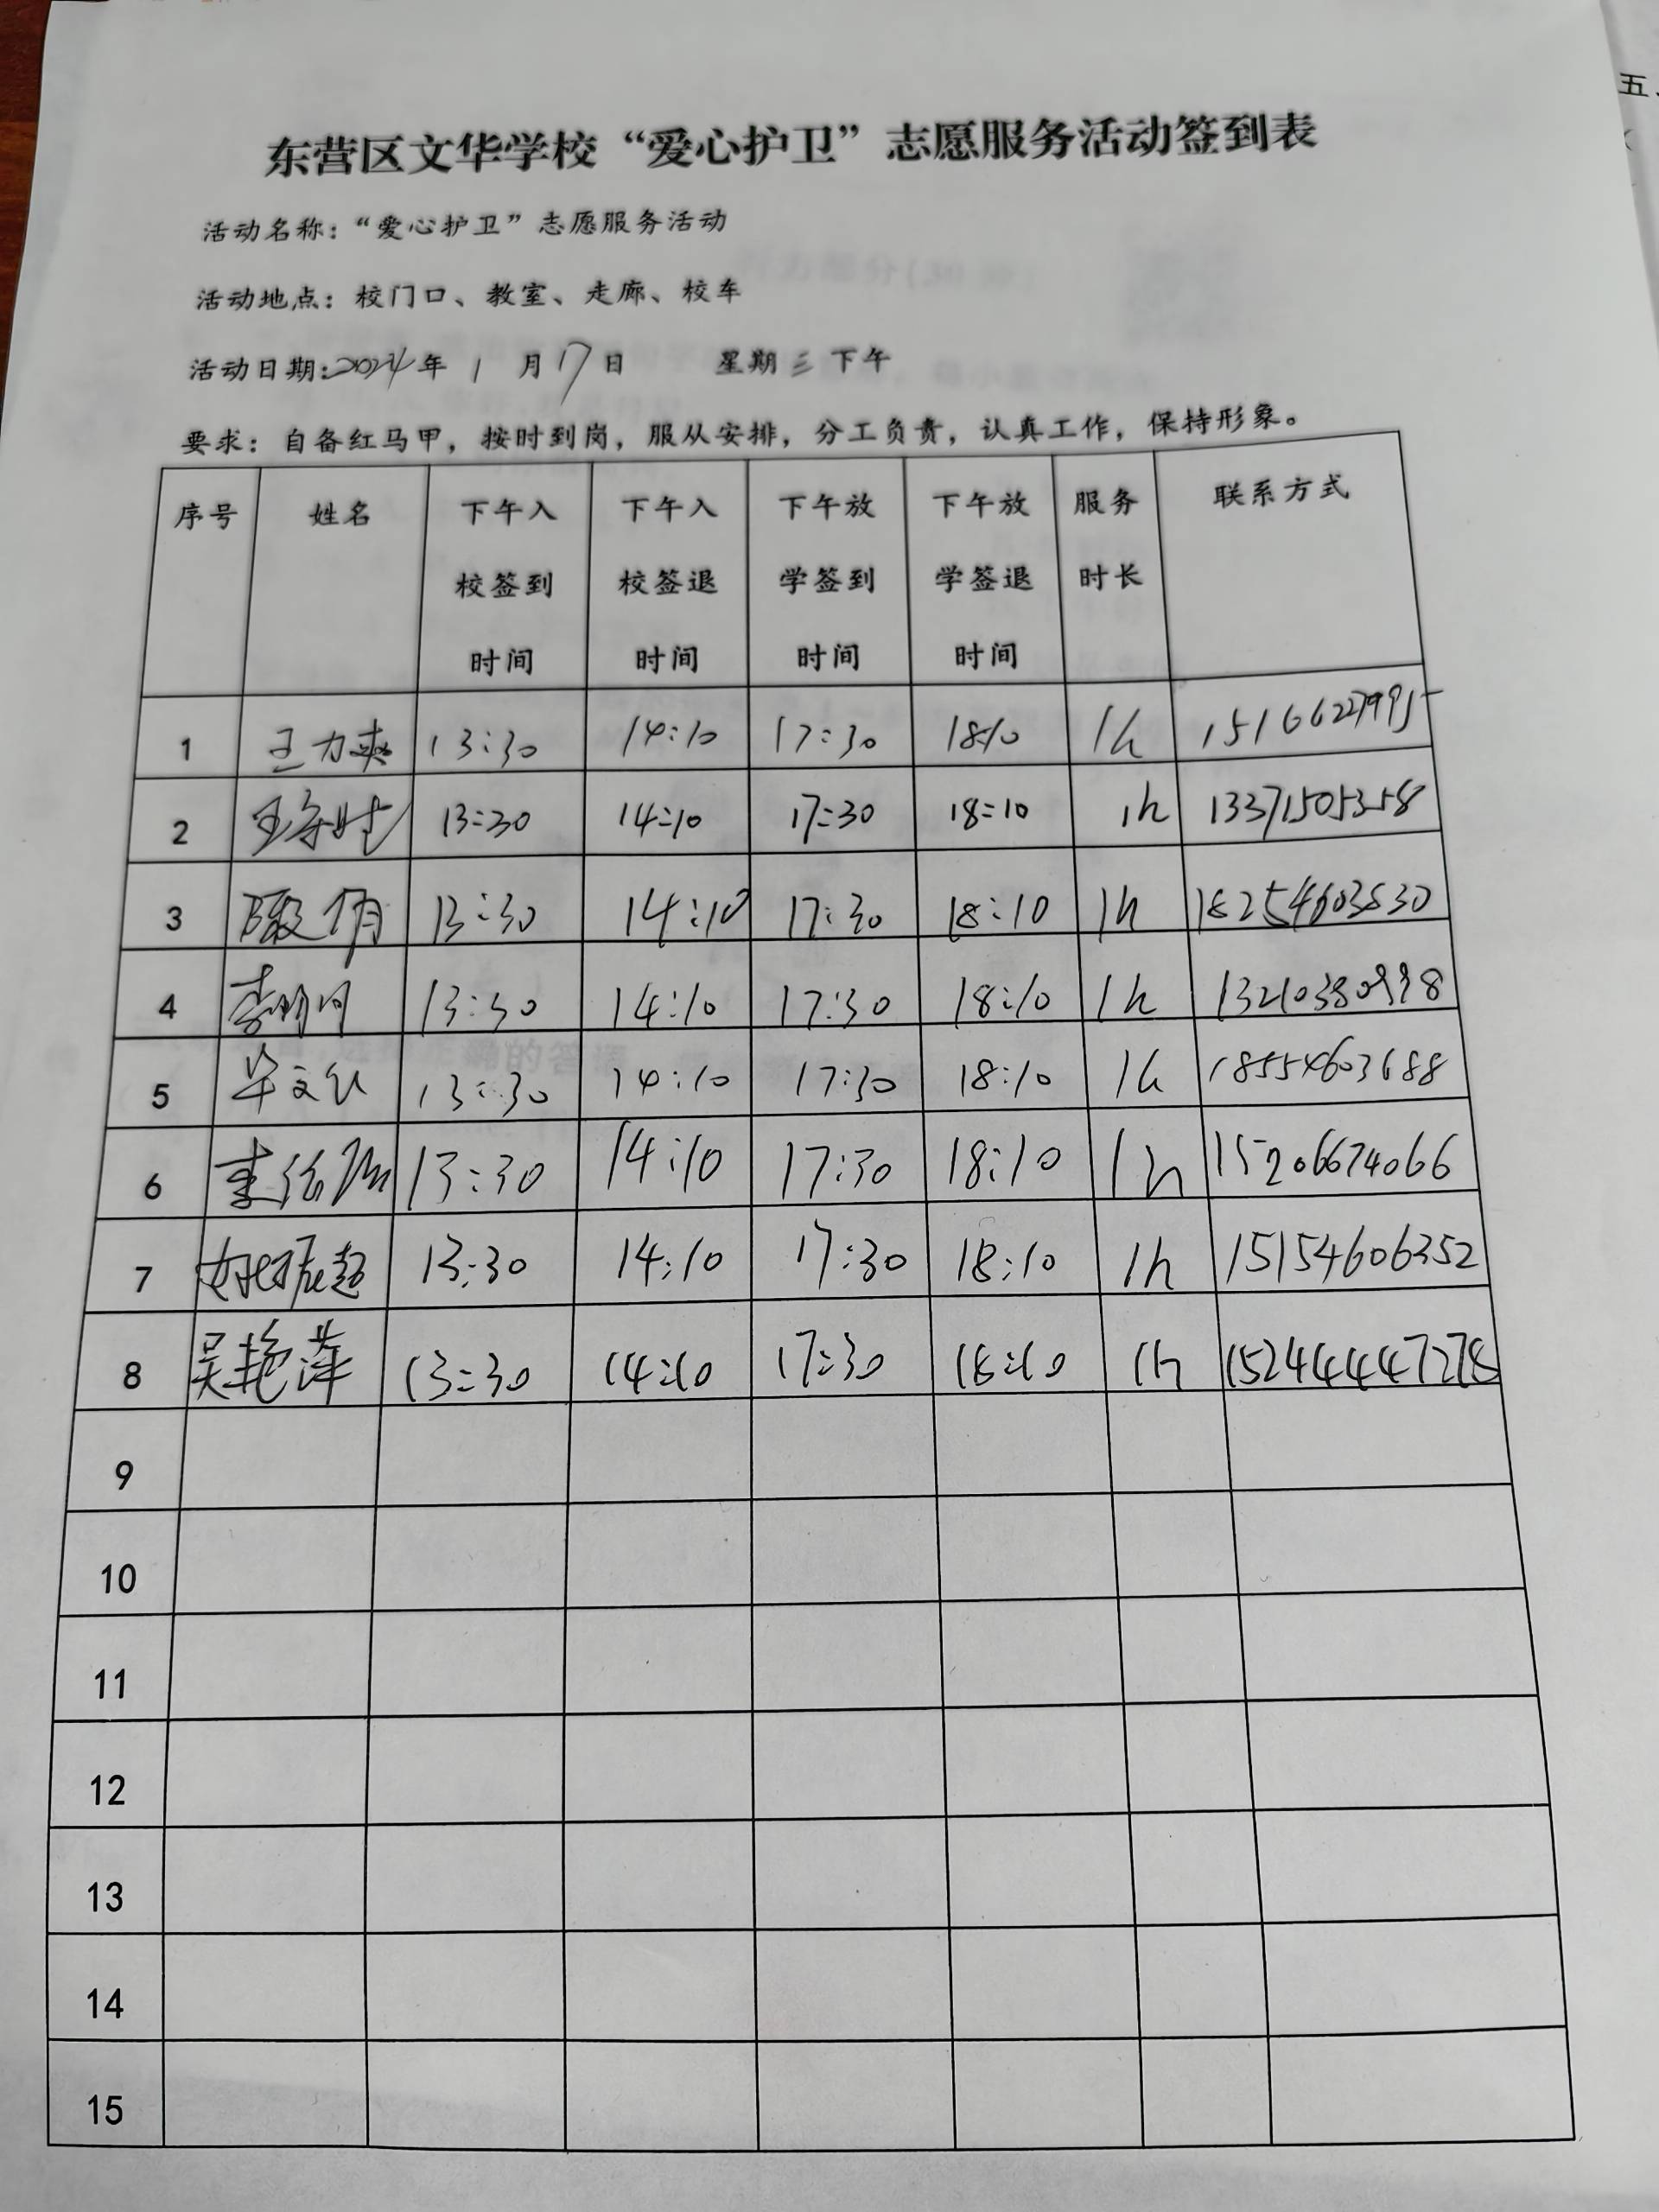 东营区文华学校“爱心护卫”志愿服务活动签到表
活动名称：“爱心护卫”志愿服务活动
活动地点：校门口、教室、走廊、校车
活动日期:2024年 1 月17日 星期三下午
要求：自备红马甲，按时到岗，服从安排，分工负责，认真工作，保持形象。
序号 姓名 下午入校签到时间 下午入校签退时间 下午放学签到时间 下午放学签退时间 服务时长 联系方式
1 王力爽 13:30 14:10 17:30 18:10 1h
2 13:30 14:10 17:30 18:10 1h 13371505358
3 殷倩 13:30 14:10 17:30 18:10 1h 18254603830
4 13:30 14:10 17:30 18:10 1h 13210380998
5 13:30 14:10 17:30 18:10 1h 18554603688
6 13:30 14:10 17:30 18:10 1h 15206674066
7 13:30 14:10 17:30 18:10 1h 15154606352
8 吴艳萍 13:30 14:10 17:30 18:10 1h 15244447278
9
10
11
12
13
14
15
五、